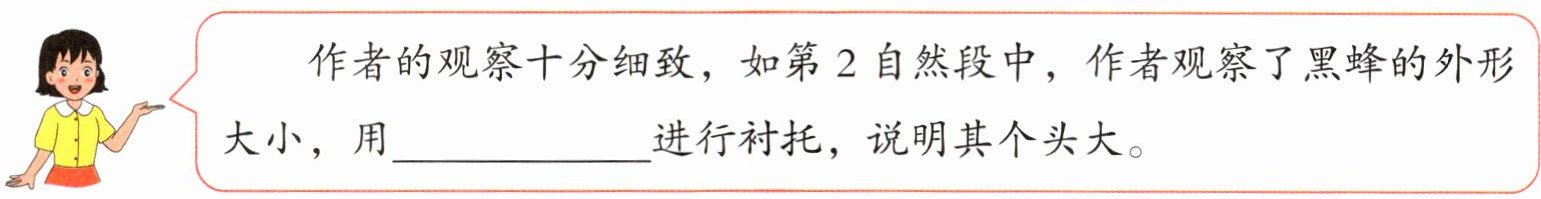 作者的观察十分细致，如第2自然段中，作者观察了黑蜂的外形
大小，用____________进行衬托，说明其个头大。